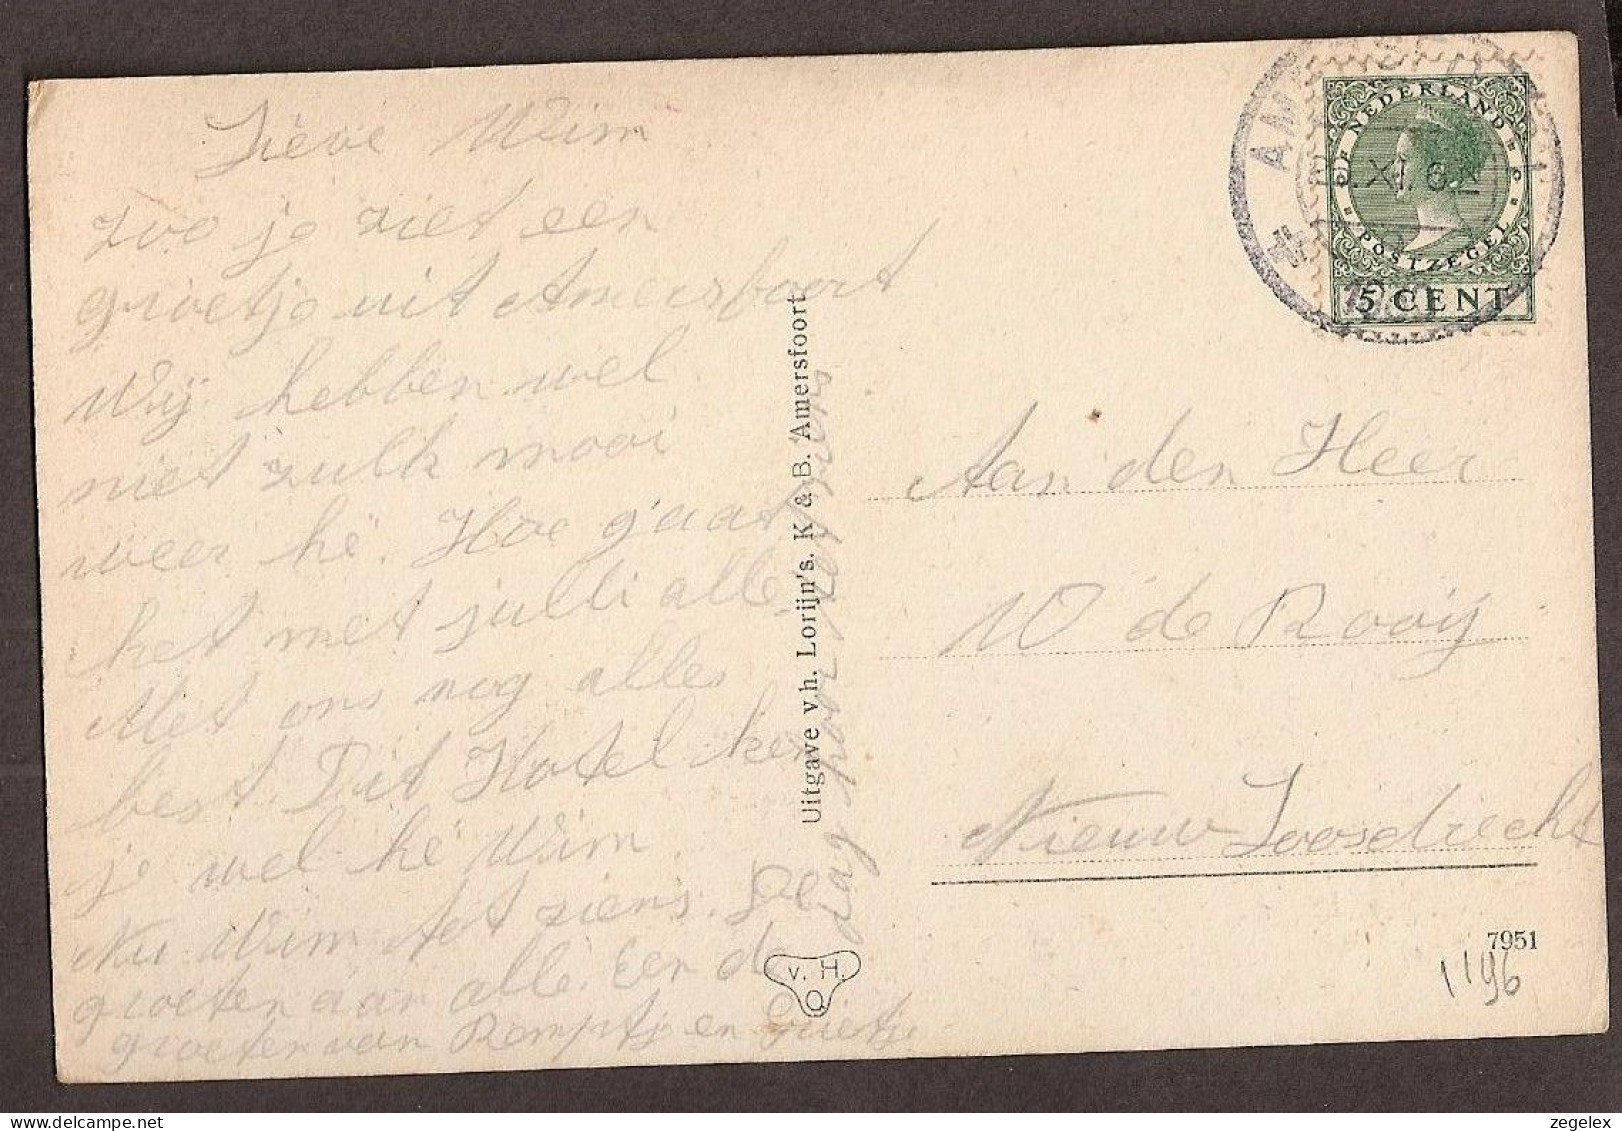 Lieve Wim
zoo je ziet een
groetje uit Amersfoort
Wij hebben wel
niet zulk mooi
weer hé. Hoe gaat
het met julli alle
Met ons nog alles
best. Dit Hotel ken
je wel hé Wim.
Nu Wim tot ziens. De
groeten aan alle. En de
groeten van Remptj en Grietje
Uitgave v.h. Lorijn's. K & B. Amersfoort
v. H.
O
NEDERLAND
POSTZEGEL
5 CENT
AM
XI. 6
Aan den Heer
W de Rooij
Nieuw Loosdrecht
7951
1196
zegelex
www.delcampe.net